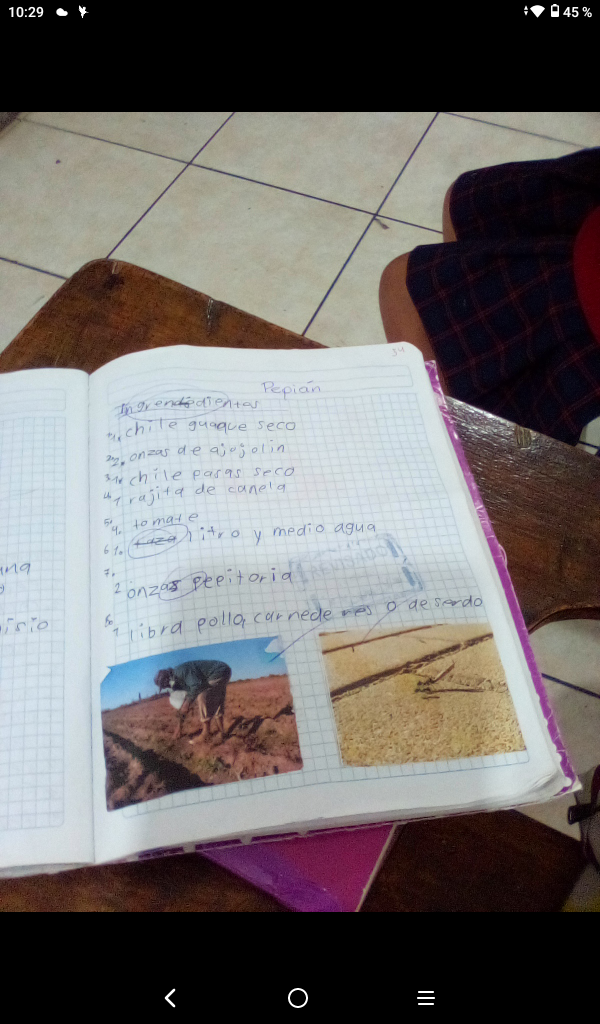 10:29
45 %
34
Pepián
Ingrendedientes
1. chile guaque seco
2. 2. onzas de ajojolin
3. 1. chile pasas seco
4. 1 rajita de canela
5. 4. tomate
6 1. taza litro y medio agua
7.
2 onzas peeitoria
8. 1 libra pollo, carnede res o deserdo